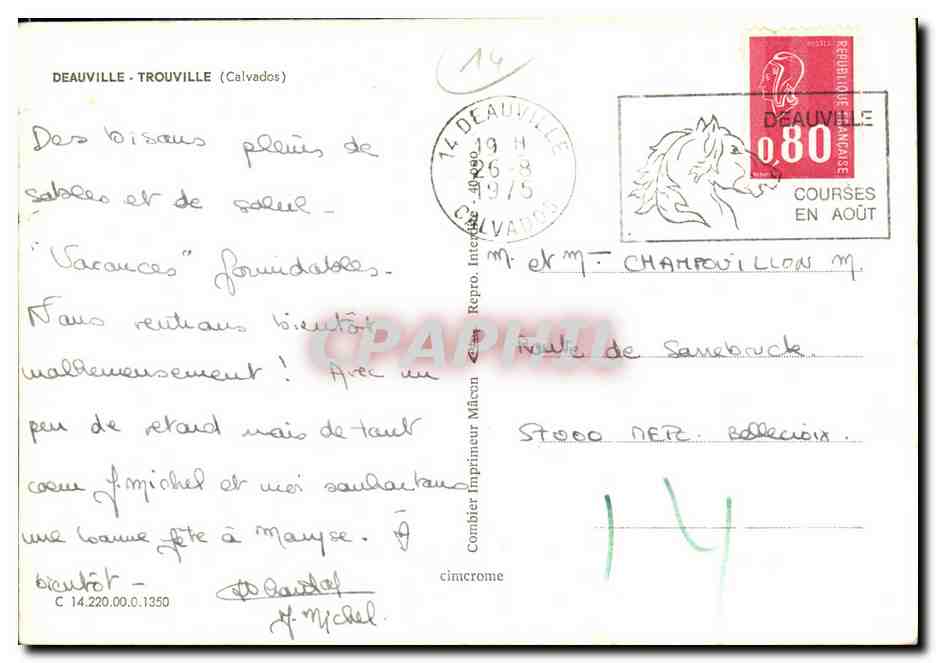 DEAUVILLE - TROUVILLE (Calvados)
14
Des bisous pleins de
sables et de soleil -
"Vacances" formidables -
Nous rentrons bientôt
malheureusement ! Avec un
peu de retard mais de tout
coeur J. Michel et moi souhaitons
une bonne fête à Maryse. À
bientôt -
J. Michel.
C 14.220.00.0.1350
Combier Imprimeur Mâcon Repro. Interdite - 40.000
cimcrome
14 DEAUVILLE
19 H
26 - 8
1975
CALVADOS
POSTES
REPUBLIQUE FRANÇAISE
0,80
DEAUVILLE
COURSES
EN AOÛT
M. et Mme CHAMPOUILLON M.
Route de Sarrebruck.
57000 METZ. Bellecroix.
14
CPARHTI